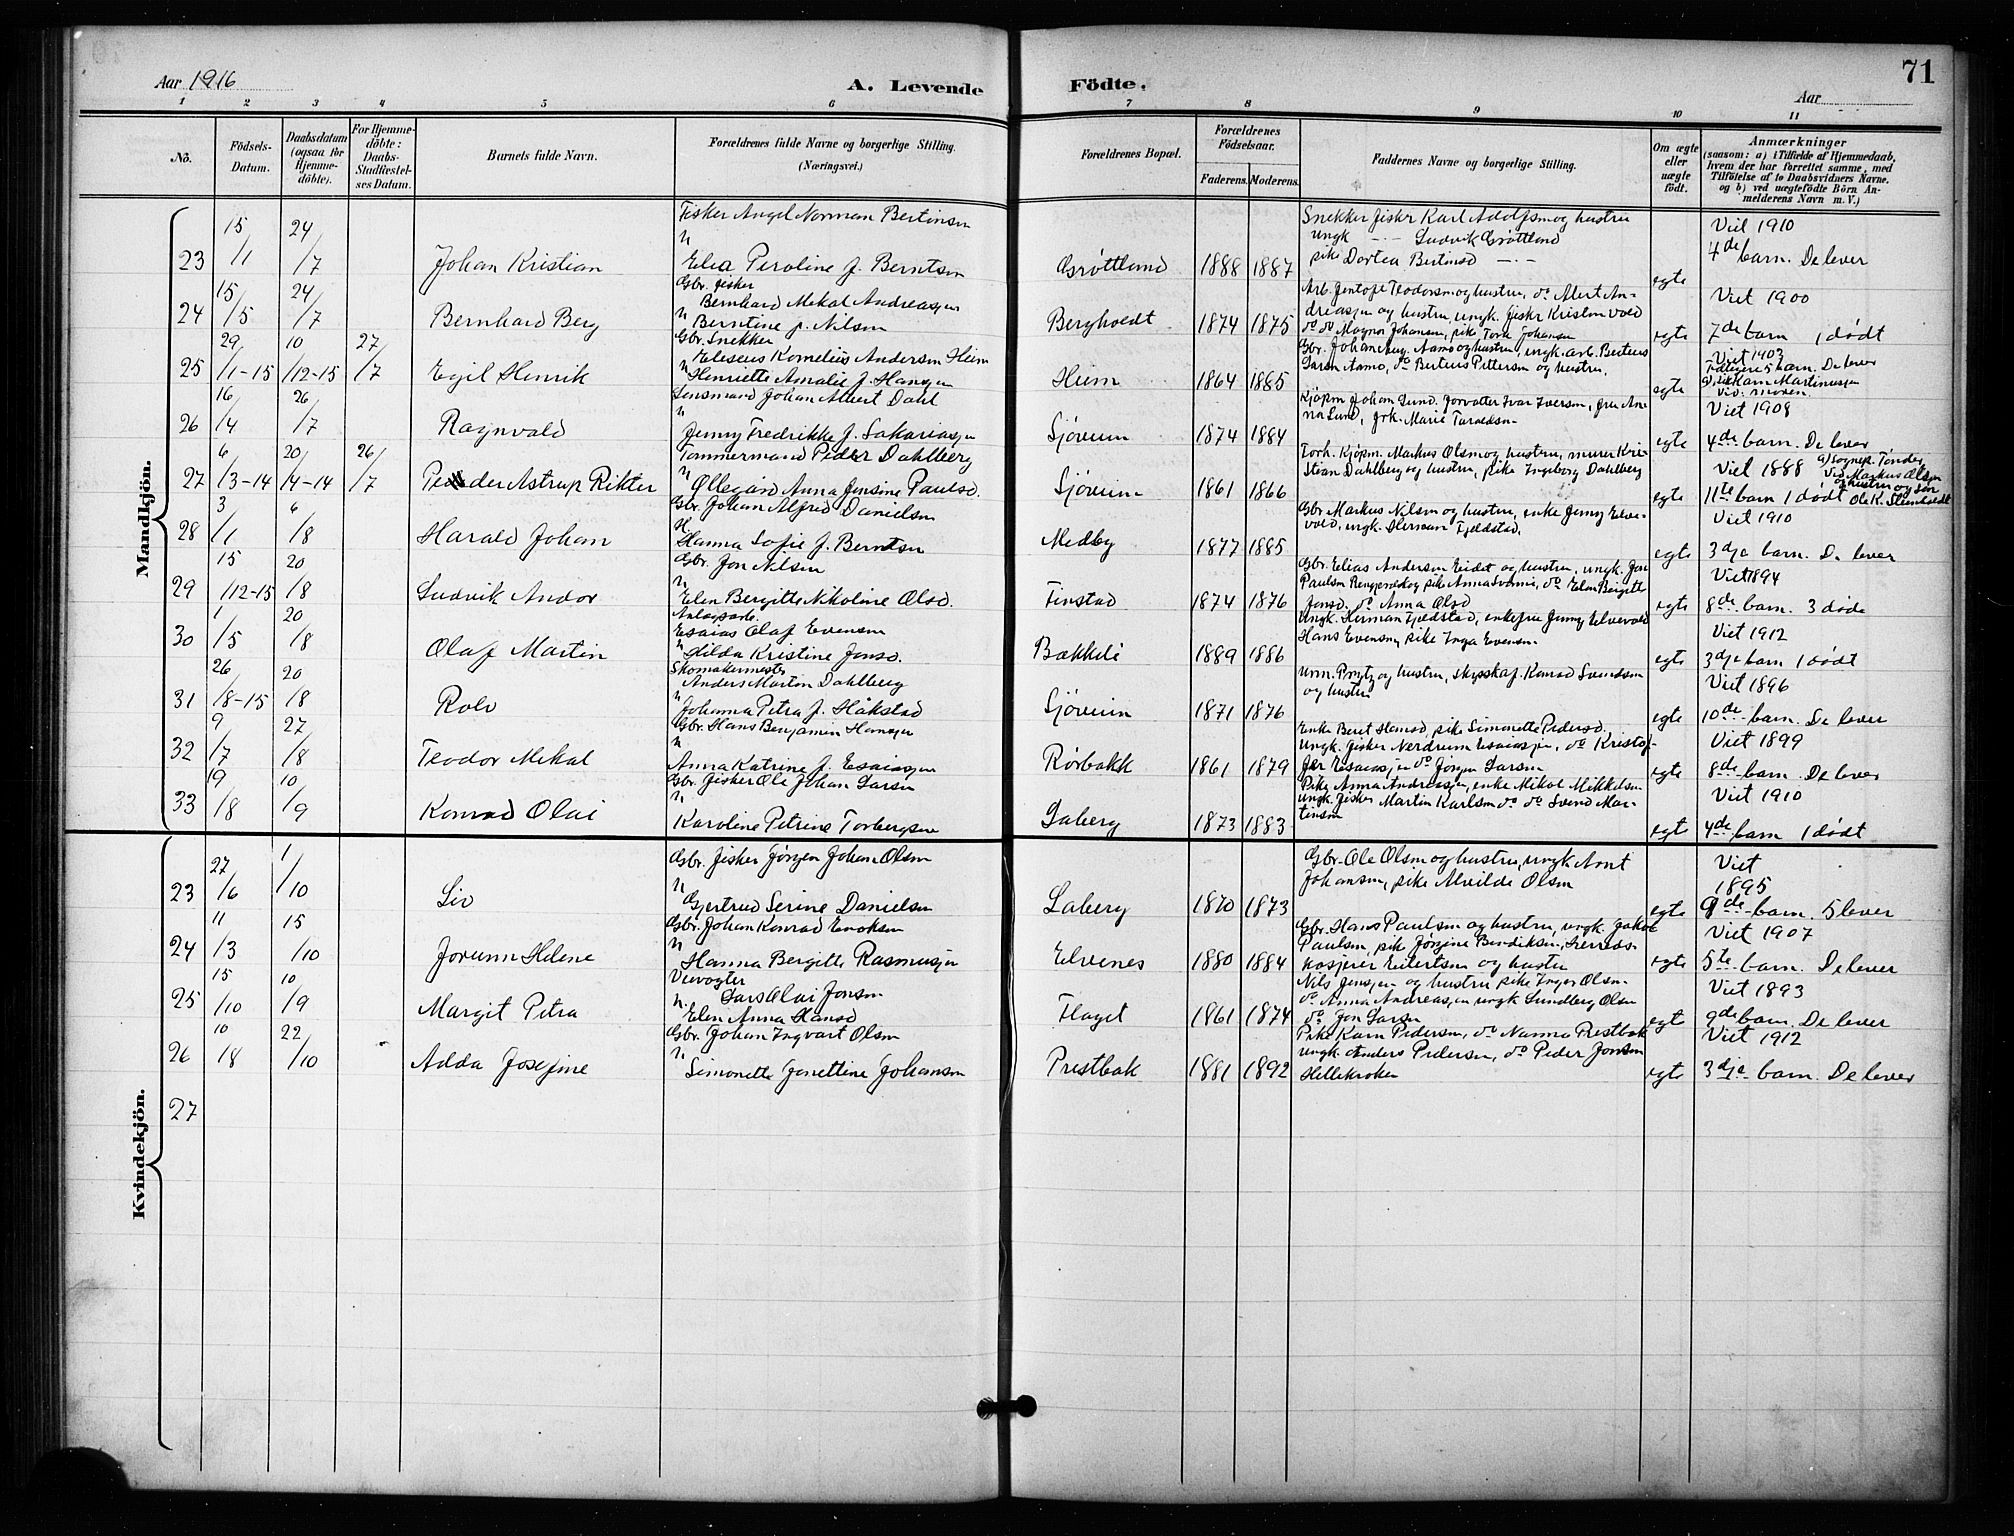 Aar 1916
A. Levende Födte.
71
Aar
1 2 3 4 5 6 7 8 9 10 11
No.
Födsels-Datum.
Daabsdatum (ogsaa for Hjemmedöbte).
For Hjemmedöbte: Daabs-Stadfestelses Datum.
Barnets fulde Navn.
Forældrenes fulde Navne og borgerlige Stilling. (Næringsvei.)
Forældrenes Bopæl.
Forældrenes Födselsaar.
Faderens. Moderens.
Faddernes Navne og borgerlige Stilling.
Om ægte eller uægte födt.
Anmærkninger
(saasom: a) i Tilfælde af Hjemmedaab, hvem der har forrettet samme, med Tilföielse af to Daabsvidners Navne. og b) ved uægtefödte Börn Anmelderens Navn m. V.)
Mandkjön.
23 15/1 24/7 Johan Kristian
Fisker Angel Norman Bertinsen
Elea Peroline f. Berntsen
Grøttland 1888 1887
Snekker fisker Karl Adolfsen og hustru
ungk — Ludvik Grøttland
pike Dortea Bertinsd —
egte
Viet 1910
4de barn. De lever
24 15/5 24/7 Bernhard Berg
Gbr. fisker
Bernhard Mekal Andreassen
Berntine f. Nilsen
Bergholdt 1874 1875
Arb. Jentoft Teodorsen og hustru, do Alert Andreassen og hustru, ungk. fisker Kristen Vold
do do Magnor Johansen, pike Tora Johansen
egte
Viet 1900
7de barn 1 dødt
25 29/1-15 10/12-15 27/7 Egil Henrik
Gbr. Snekker
Eleseus Kornelius Andersen Heim
Henriette Amalie f. Hansen
Heim 1864 1885
Gbr. Johan Aug. Aamo og hustru, ungk. arb. Berteus
Larsen Aamo, do Berteus Pettersen og hustru.
egte
Viet 1903
Tidligere 5 barn. De lever
Martinussen
26 16/4 26/7 Ragnvald
Lensmand Johan Albert Dahl
Jenny Fredrikke f. Sakariassen
Sjøvein 1874 1884
Kjøpm. Johan Lund. forvalter Ivar Iversen, fru Anna Lund, frk. Marie Taraldsen
egte
Viet 1908
4de barn. De lever
27 6/3-14 20/4-14 26/7 Peder Astrup Rikter
Tømmermand Peder Dahlberg
Ollegård Anna Jensine Paulsd.
Sjøvein 1861 1866
Forh. Kjøpm. Markus Olsen og hustru, murer Kristian Dahlberg og hustru, pike Ingeborg Dahlberg
egte
Viet 1888
11te barn 1 dødt
a) sognep. Tønder
Vid. Markus Olsen
og hustru og
Ole K. Stenholdt
28 3/1 6/8 Harald Johan
Gbr. Johan Alfred Danielsen
Hanna Sofie f. Berntsen
Medby 1877 1885
Gbr Markus Nilsen og hustru, enke Jenny Elvevold, ungk. Herman Fjeldstad.
egte
Viet 1910
3dje barn. De lever
29 15/12-15 20/8 Ludvik Andor
Gbr. Jon Nilsen
Elen Bergitte Nikoline Olsd.
Finstad 1874 1876
Gbr. Elias Andersen Eidet og hustru, ungk. Jon
Paulsen, pike Anna, do Elen Bergitte
Jonsd. do Anna Olsd
egte
Viet 1894
8de barn. 3 døde
30 1/5 20/8 Olaf Martin
Anlægsarb.
Esaias Olaf Evensen
Hilda Kristine Jonsd.
Bækkeli 1889 1886
Ungk. Herman Fjeldstad, enkefru Jenny Elvevold
Hans Evensen, pike Inga Evensen
egte
Viet 1912
3dje barn 1 dødt
31 26/8-15 20/8 Rolv
Skomakermester
Anders Martin Dahlberg
Johanna Petra f. Håkstad
Sjøvein 1871 1876
Prytz og hustru, skysskaf. Konrad Svendsen
og hustru
egte
Viet 1896
10de barn. De lever
32 9/7 27/8 Teodor Mekal
Gbr. Hans Benjamin Hansen
Anna Katrine f. Esaiassen
Rørbakk 1861 1879
Enke Beret Hansd, pike Simonette Pedersd.
Ungk. fisker Nerdrum Esaiassen, do Kristoffer Esaiassen do Jørgen Larsen
egte
Viet 1899
8de barn. De lever
33 19/8 10/9 Konrad Olai
Gbr. fisker Ole Johan Larsen
Karoline Petrine Torbergsen
Laberg 1873 1883
Pike Anna Andreassen, enke Mikal Mikkelsen
ungk. fisker Martin Karlsen do do Svend Martinsen
egte
Viet 1910
4de barn 1 dødt
Kvindekjön.
23 27/6 1/10 Liv
Gbr. fisker Jørgen Johan Olsen
Gjertrud Serine Danielsen
Laberg 1870 1873
Gbr. Ole Olsen og hustru, ungk Arnt
Johansen, pike Alvilde Olsen
egte
Viet
1895
9de barn. 5 lever
24 11/3 15/10 Jorunn Helene
Gbr. Johan Konrad Enoksen
Hanna Bergitte Rasmussen
Elvenes 1880 1884
Gbr. Hans Paulsen og hustru, ungk. Jakob
Paulsen, pik Jørgine Bendiksen, herredskasserer Eilertsen og hustru
egte
Viet 1907
5te barn. De lever
25 15/10 10/9 Margit Petra
Veivogter
Lars Olai Jonsen
Elen Anna Hansd
Flaget 1861 1874
Nils Jenssen og hustru pike Inger Olsen
do Anna Andreassen ungk Lundberg Olsen
do Jon Larsen
egte
Viet 1893
9de barn. De lever
26 10/8 22/10 Adda Josefine
Gbr. Johan Ingvart Olsen
Simonette Jonettine Johansen
Prestbak 1881 1892
Pike Karn Pedersen, do Nanna Prestbak
ungk. Anders Pedersen, do Peder Jonsen
Hellekroken
egte
Viet 1912
3dje barn. De lever
27